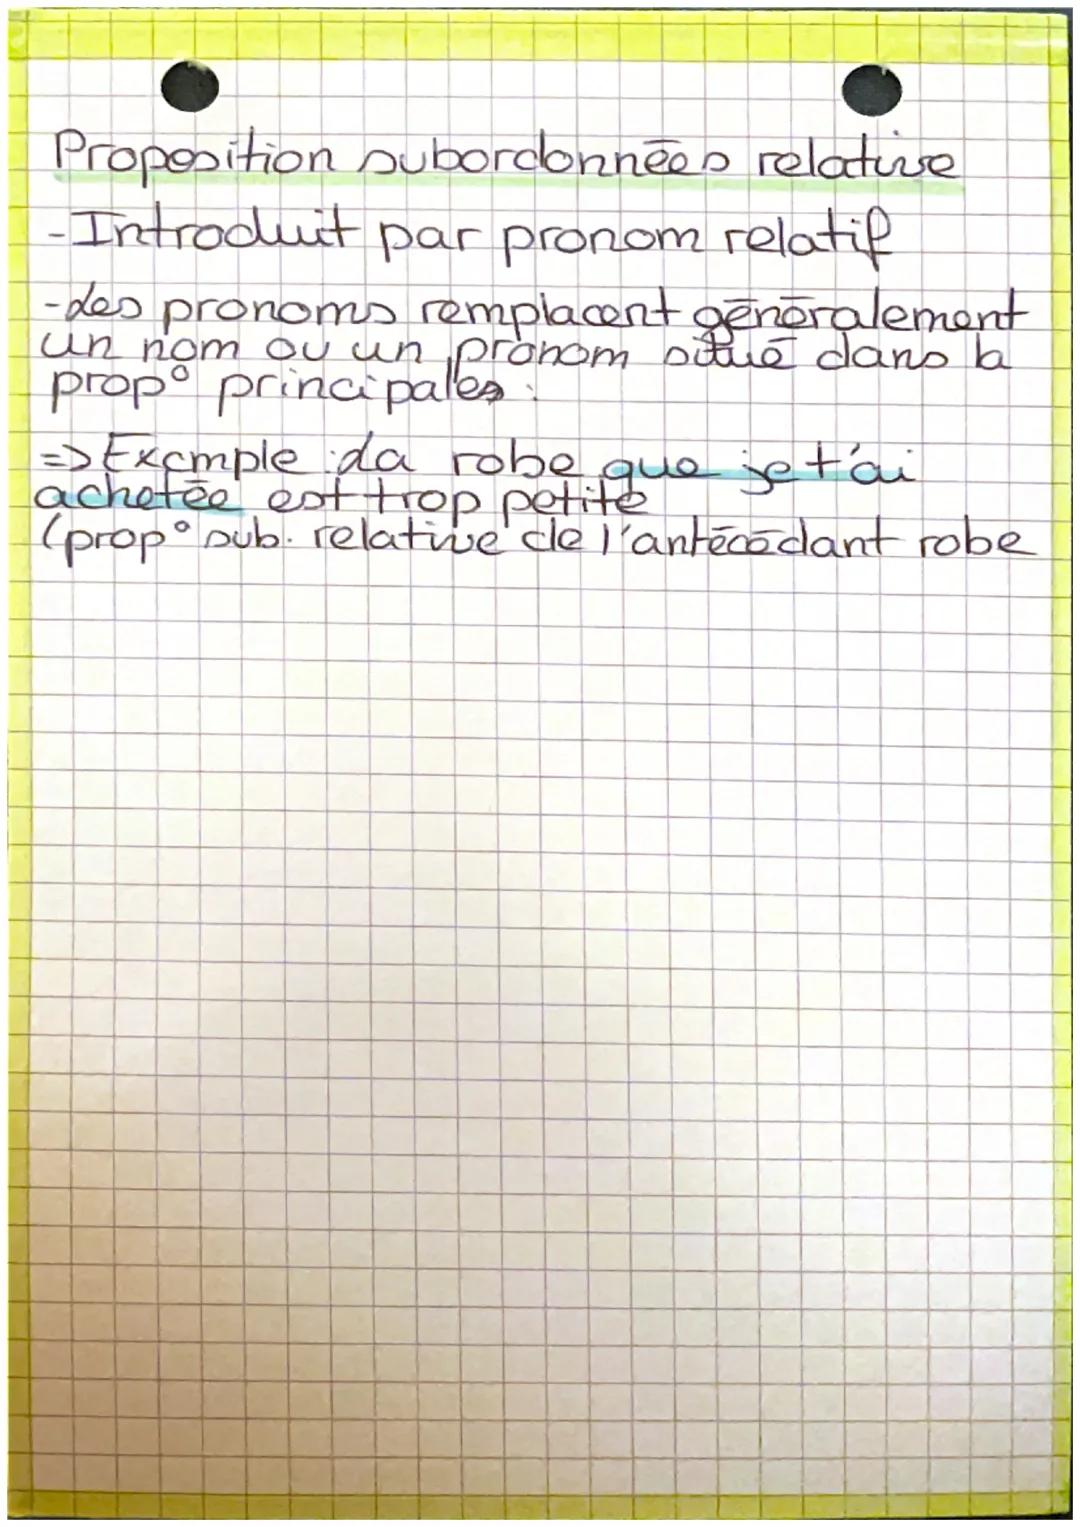 Proposition subordonnées relative
- Introduit par pronom relatif
- les pronoms remplacent généralement
un nom ou un pronom situé dans la
prop° principales :
=> Exemple : La robe que je t'ai
achetée est trop petite
(prop° sub. relative de l'antécédant robe